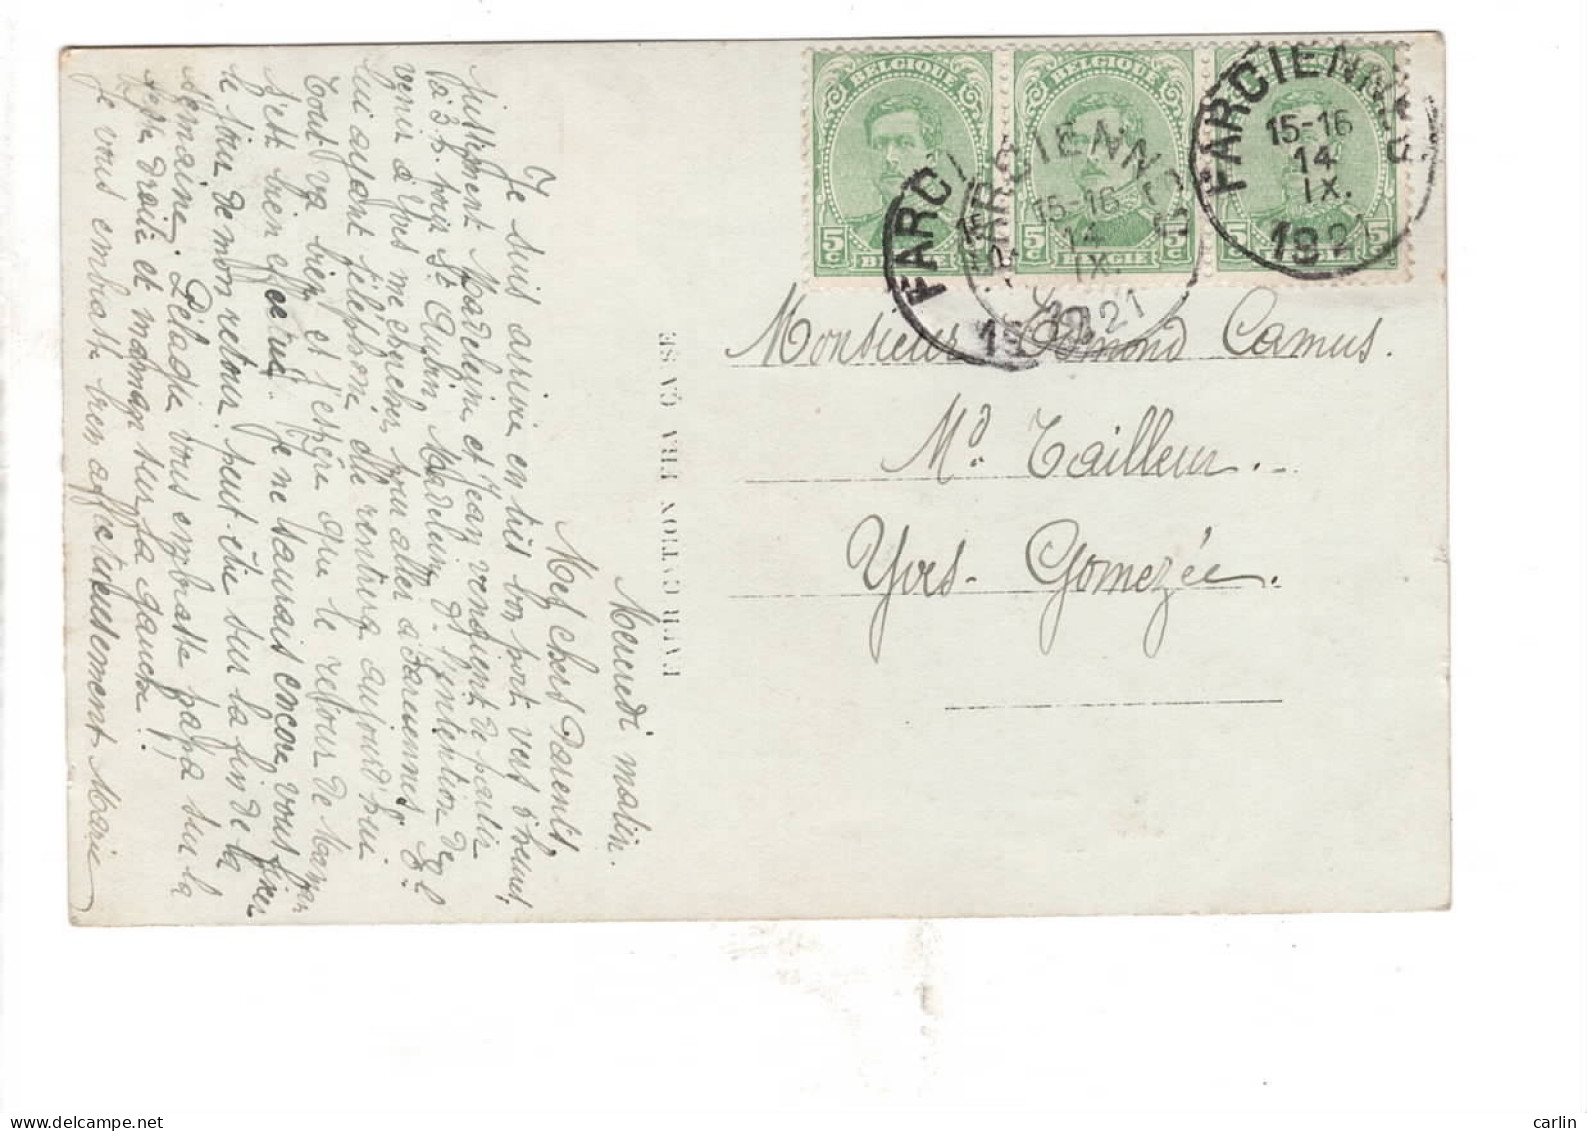 Mercredi matin.
Mes chers Parents,
Je suis arrivée en très bon port vers 8 heures,
justement Madeleine et Jean venaient de partir
à 3 h. pour St Aubin, Madeleine a l'intention de
venir à Yves me chercher pour aller à Farciennes.
lui ayant téléphoné elle rentrera aujourd'hui
Tout va bien et j'espère que le retour de Maman
s'est bien effectué. Je ne saurais encore vous fixer
le jour de mon retour. peut-être sur la fin de la
semaine. Pélagie vous embrasse papa sur la
droite et maman sur la gauche!
Je vous embrasse bien affectueusement Marie
FABRICATION FRANÇAISE
BELGIQUE
BELGIQUE
5c 5c
5c 5c
5c
BELGIE
BELGIE
FARCIENNES
15-16
14
IX.
1921
FARCIENNES
15-16
14
IX.
1921
FARCI
19
Monsieur Edmond Camus.
Md. Tailleur.
Yves-Gomezée.
carlin